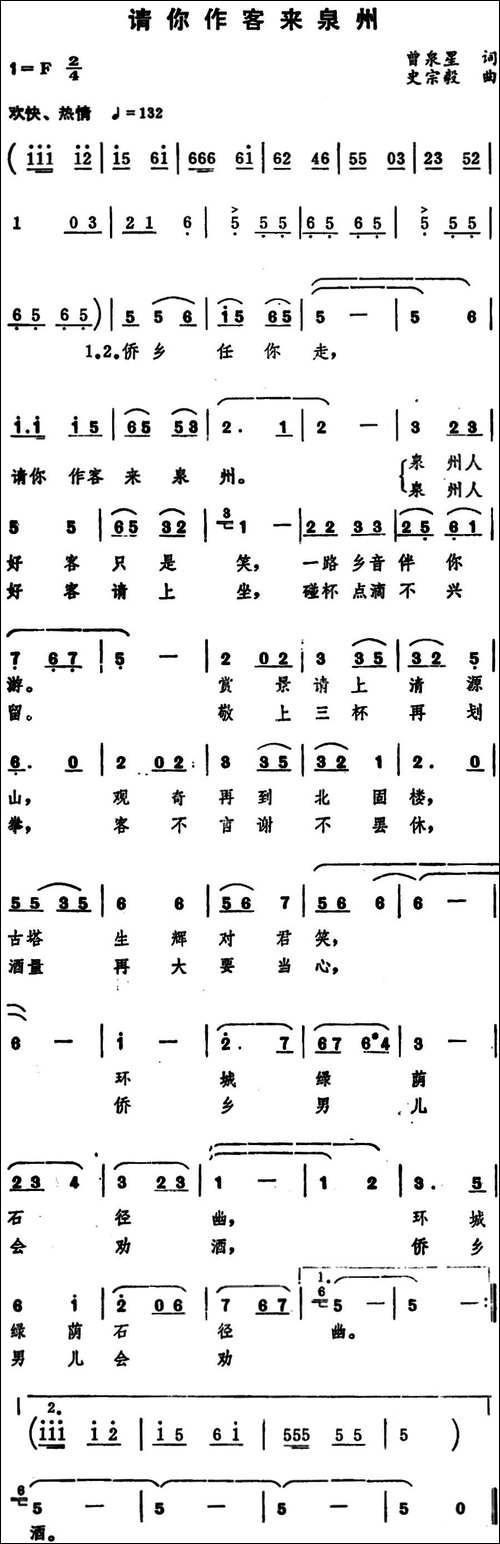 请你作客来泉州
1=F 2/4
曾泉星 词
史宗毅 曲
欢快、热情 ♩=132
( i̇i̇i̇ i̇2̇ | i̇5 6i̇ | 666 6i̇ | 62 46 | 55 03 | 23 52 |
1 03 | 21 6̣ | 5̣ 5̣5̣ | 6̣5̣ 6̣5̣ | 5̣ 5̣5̣ |
6̣5̣ 6̣5̣ ) | 5 5 6 | i̇5 65 | 5 — | 5 6 |
1.2.侨乡 任你走,
i̇.i̇ i̇5 | 65 53 | 2. 1 | 2 — | 3 23 |
请你 作客来泉州。 泉州人
泉州人
5 5 | 65 32 | 3 1 — | 22 33 | 25̣ 6̣1 |
好客只是笑, 一路乡音伴你
好客请上坐, 碰杯点滴不兴
7̣ 6̣7̣ | 5̣ — | 2 02 | 3 35 | 32 5̣ |
游。 赏景请上清源
留。 敬上三杯再划
6̣. 0 | 2 02 | 3 35 | 32 1 | 2. 0 |
山, 观奇再到北固楼,
拳, 客不言谢不罢休,
55 35 | 6 6 | 56 7 | 56 6 | 6 — |
古塔生辉对君笑,
酒量再大要当心,
6 — | i̇ — | 2̇. 7 | 67 6#4 | 3 — |
环城绿荫
侨乡男儿
23 4 | 3 23 | 1 — | 1 2 | 3. 5 |
石径幽, 环城
会劝酒, 侨乡
6 i̇ | 2̇ 06 | 7 67 | 1. 6 5 — | 5 — :|
绿荫石径幽。
男儿会劝
2.
( i̇i̇i̇ i̇2̇ | i̇5 6i̇ | 555 55 | 5 )
6 5 — | 5 — | 5 — | 5 0 ‖
酒。